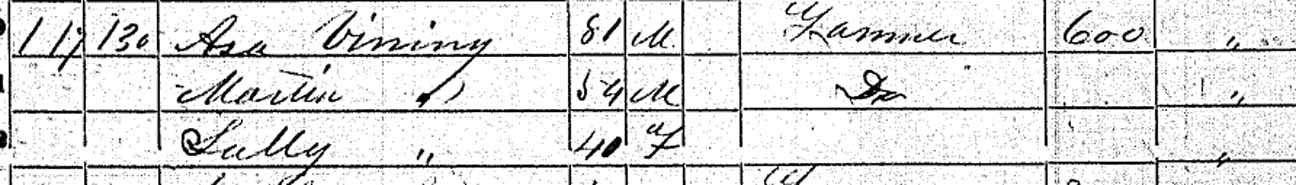 117 130 Asa Vining 81 M Farmer 600 "
Martin " 54 M Do "
Sally " 40 F "